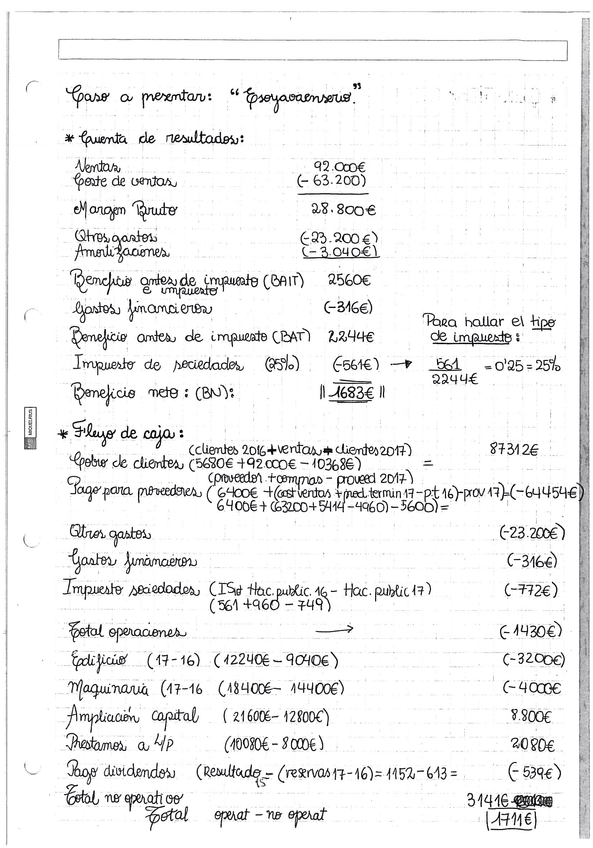 Caso a presentar: "Esoyavaenserio."
* Cuenta de resultados:
Ventas 92.000€
Coste de ventas (-63.200)
Margen Bruto 28.800€
Otros gastos (-23.200€)
Amortizaciones (-3.040€)
Beneficio antes de impuesto (BAIT) 2560€
e impuesto
Gastos financieros (-316€)
Beneficio antes de impuesto (BAT) 2244€
Impuesto de sociedades (25%) (-561€) →
Beneficio neto: (BN): || 1683€ ||
Para hallar el tipo
de impuesto:
561
2244€ = 0'25 = 25%
* Flujo de caja:
(clientes 2016 + ventas - clientes 2017) 87312€
Cobro de clientes (5680€ + 92000€ - 10368€) =
(proveedor + compras - proveed 2017)
Pago para proveedores (6400€ + (cost ventas + prod. termin 17 - p.t 16) - prov 17) = (-64454€)
6400€ + (63200 + 5414 - 4960) - 5600) =
Otros gastos (-23.200€)
Gastos financieros (-316€)
Impuesto sociedades (IS+ Hac. public. 16 - Hac. public 17) (-772€)
(561 + 960 - 749)
Total operaciones → (-1430€)
Edificio (17-16) (12240€ - 9040€) (-3200€)
Maquinaria (17-16 (18400€ - 14400€) (-4000€
Ampliación capital (21600 - 12800€) 8.800€
Préstamos a L/P (10080€ - 8000€) 2080€
Pago dividendos (Resultado 15 - (reservas 17-16) = 1152 - 613 = (-539€)
Total no operativo 3141€
Total operat - no operat 1711€
MIQUELRIUS